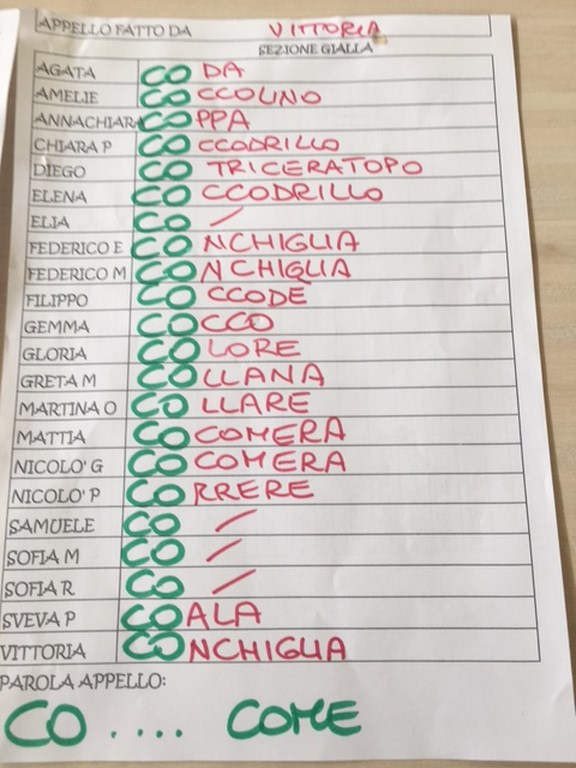 APPELLO FATTO DA VITTORIA
SEZIONE GIALLA
AGATA CO DA
AMELIE CO CCOLINO
ANNACHIARA CO PPA
CHIARA P CO CCODRILLO
DIEGO CO TRICERATOPO
ELENA CO CCODRILLO
ELIA CO /
FEDERICO E CO NCHIGLIA
FEDERICO M CO NCHIGLIA
FILIPPO CO CCODE
GEMMA CO CCO
GLORIA CO LORE
GRETA M CO LLANA
MARTINA O CO LLARE
MATTIA CO COMERA
NICOLO' G CO COMERA
NICOLO' P CO RRERE
SAMUELE CO /
SOFIA M CO /
SOFIA R CO /
SVEVA P CO ALA
VITTORIA CO NCHIGLIA
PAROLA APPELLO:
CO .... COME